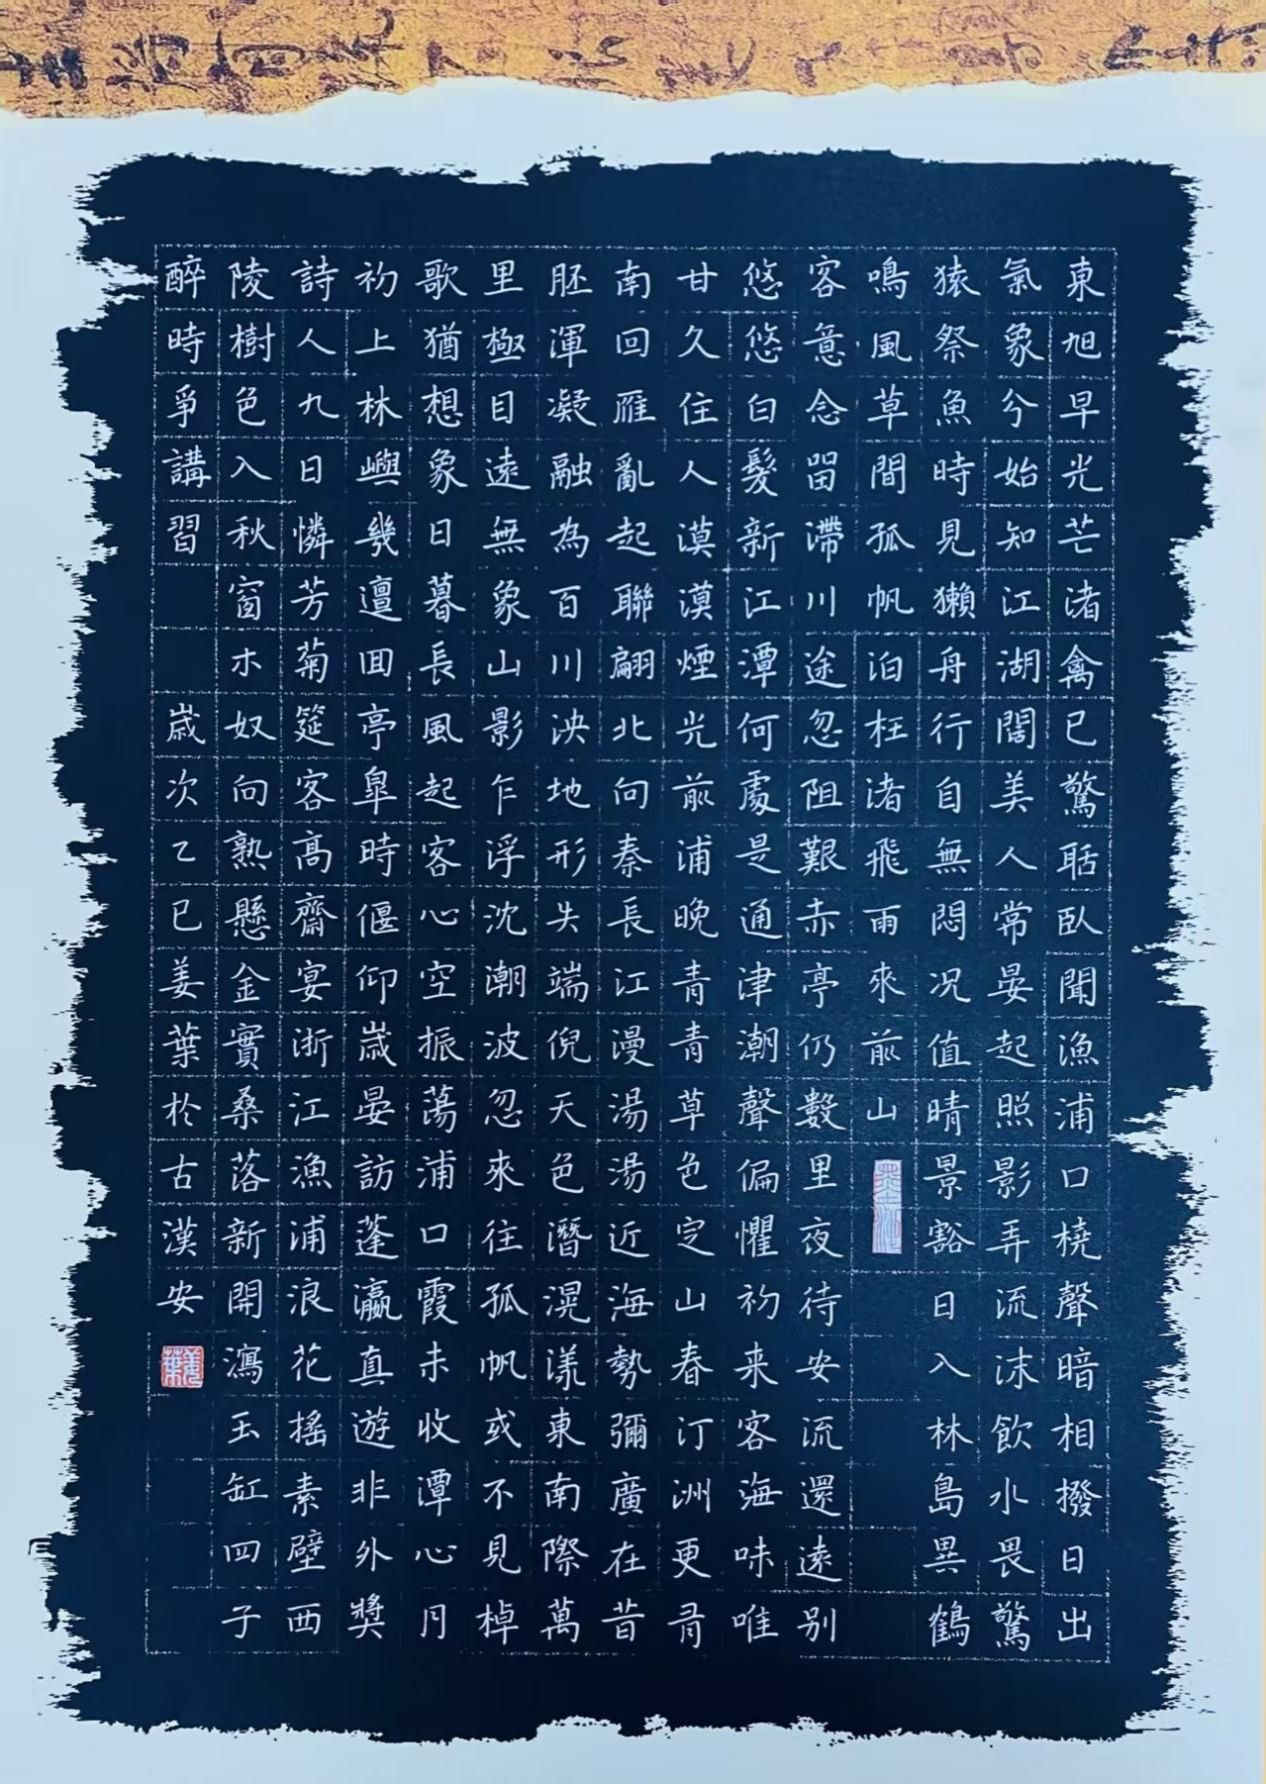 東旭早光芒渚禽已驚聒臥聞漁浦口橈聲暗相撥日出
氣象兮始知江湖闊美人常晏起照影弄流沫飲水畏驚
猿祭魚時見獺舟行自無悶况值晴景豁日入林島異鶴
鳴風草間孤帆泊枉渚飛雨來前山
容意念留滯川途忽阻艱赤亭仍數里夜待安流還遠别
悠悠白髮新江潭何處是通津潮聲偏懼初来客海味唯
甘久住人漠漠煙光前浦晚青青草色定山春汀洲更有
南回雁亂起聯翩北向秦長江漫湯湯近海勢彌廣在昔
胚渾凝融為百川泱地形失端倪天色潛滉漾東南際萬
里極目遠無象山影乍浮沈潮波忽來往孤帆或不見棹
歌猶想象日暮長風起客心空振蕩浦口霞未收潭心月
初上林嶼幾邅回亭臯時偃仰歲晏訪蓬瀛真遊非外獎
詩人九日憐芳菊筵客高齋宴浙江漁浦浪花搖素壁西
陵樹色入秋窗木奴向熟懸金實桑落新開瀉玉缸四子
醉時爭講習 歲次乙巳姜葉於古漢安
姜葉